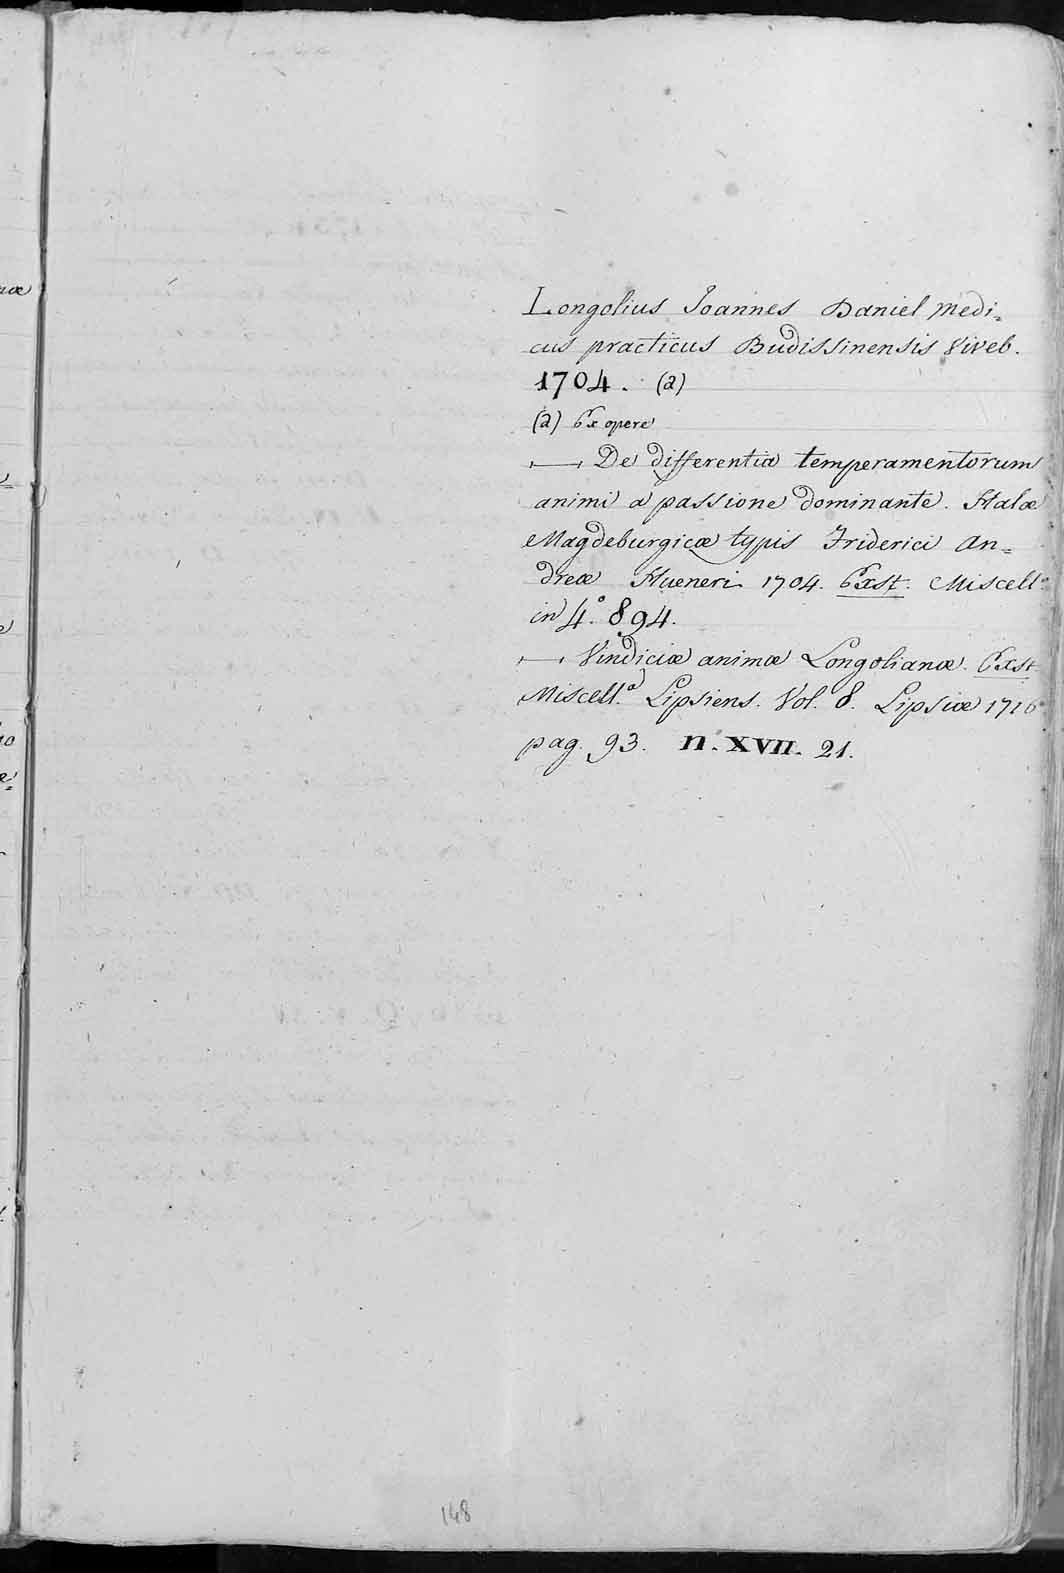 Longolius Joannes Daniel Medi=
cus practicus Budissinensis Viveb.
1704. (a)
(a) Ex opere
— De differentia temperamentorum
animi a passione dominante. Halæ
Magdeburgicæ typis Friderici An=
dreæ Hueneri 1704. Exst. Miscell.ª
in 4.º 894.
— Vindiciæ animæ Longolianæ. Exst
Miscell.ª Lipsiens. Vol. 8. Lipsiæ 1716
pag. 93. n. XVII. 21.
148